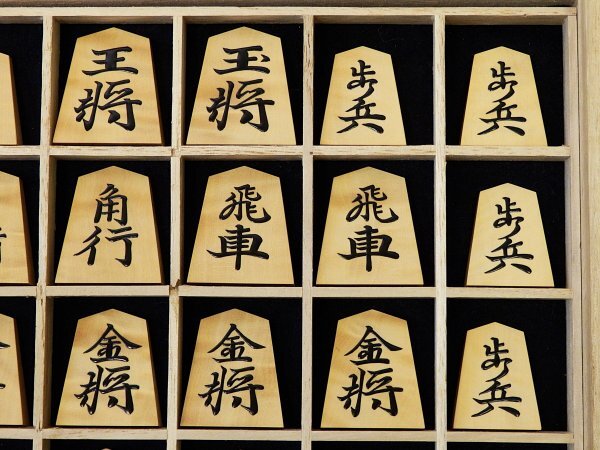 王将
玉将
歩兵
歩兵
角行
飛車
飛車
歩兵
金将
金将
金将
歩兵